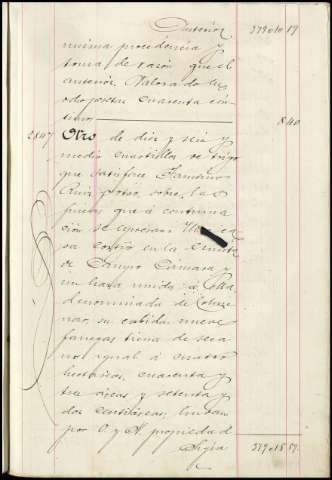 Anterior 379010 17
misma procedencia y
toma de razon que el
anterior. Valorado en
ocho pesetas cuarenta cen-
timos 8.40
2847 Otro de diez y seis y
medio cuartillos de trigo
que satisface
Ruiz sobre las
fincas que á continua
ción se expresan: Una ca
sa cortijo en la Ermita
de Campo Cámara y
un haza unida á ella
denominada de
su cabida nueve
fanegas tierra de seca
no igual á cuatro
hectáreas, cuarenta y
tres áreas y setenta y
dos centiáreas, lindan
por O. y N. propiedad d
Sigue 379018 57